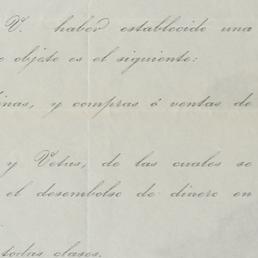 V. haber establecido una
objeto es el siguiente:
inas, y compras ó ventas de
y Vetas, de las cuales se
el desembolso de dinero en
todas clases.